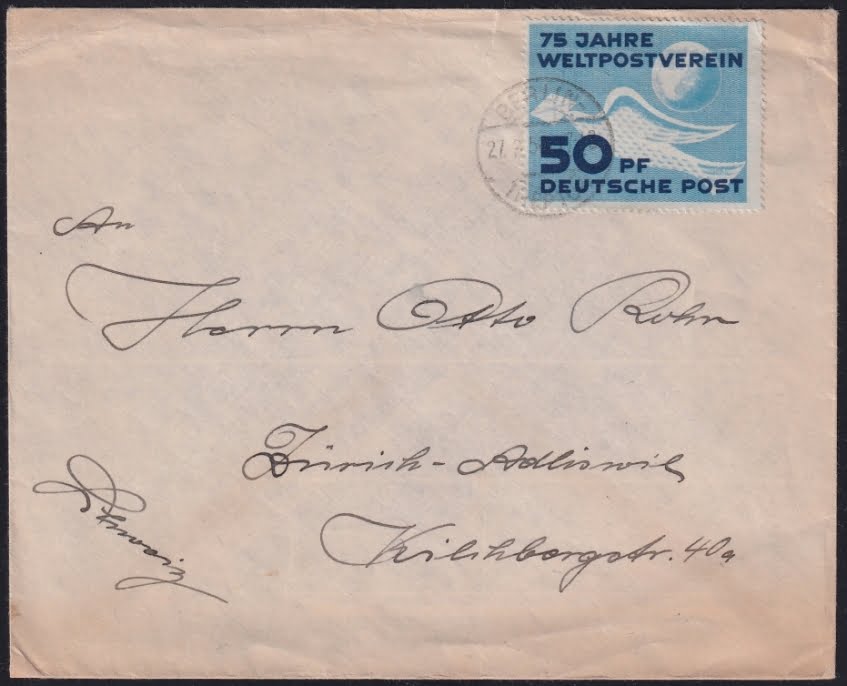 75 JAHRE
WELTPOSTVEREIN
50 PF
DEUTSCHE POST
BERLIN
27.
An
Herrn Otto Rohn
Zürich-Adliswil
Kilchbergstr. 40a
Schweiz